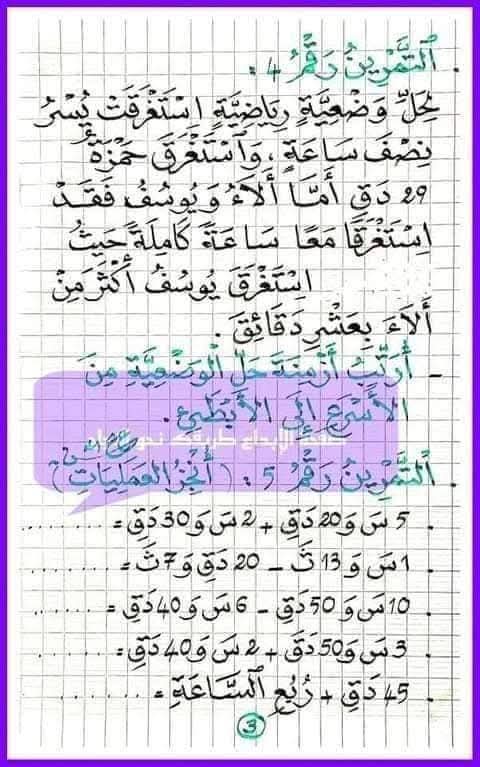 . التَّمْرِينُ رَقْمُ 4 :
لِحَلِّ وَضْعِيَّةٍ رِيَاضِيَّةٍ اِسْتَغْرَقَتْ يُسْرُ
نِصْفَ سَاعَةٍ ، وَاسْتَغْرَقَ حَمْزَةُ
29 دَقِ أَمَّا أَلَاءُ وَيُوسُفُ فَقَدْ
اِسْتَغْرَقَا مَعًا سَاعَةً كَامِلَةً حَيْثُ
اِسْتَغْرَقَ يُوسُفُ أَكْثَرَ مِنْ
أَلَاءَ بِعَشْرِ دَقَائِقَ .
- أُرَتِّبُ أَزْمِنَةَ حَلِّ الْوَضْعِيَّةِ مِنَ
الْأَسْرَعِ إِلَى الْأَبْطَئِ .
. التَّمْرِينُ رَقْمُ 5 : ( أُنْجِزُ الْعَمَلِيَّاتِ )
. 5 سَ وَ 20 دَقِ + 2 سَ وَ 30 دَقِ = .........
. 1 سَ وَ 13 ثَ - 20 دَقِ وَ 7 ثَ = .........
. 10 سَ وَ 50 دَقِ - 6 سَ وَ 40 دَقِ = .......
. 3 سَ وَ 50 دَقِ + 2 سَ وَ 40 دَقِ = .......
. 45 دَقِ + رُبُعِ السَّاعَةِ = ......
3